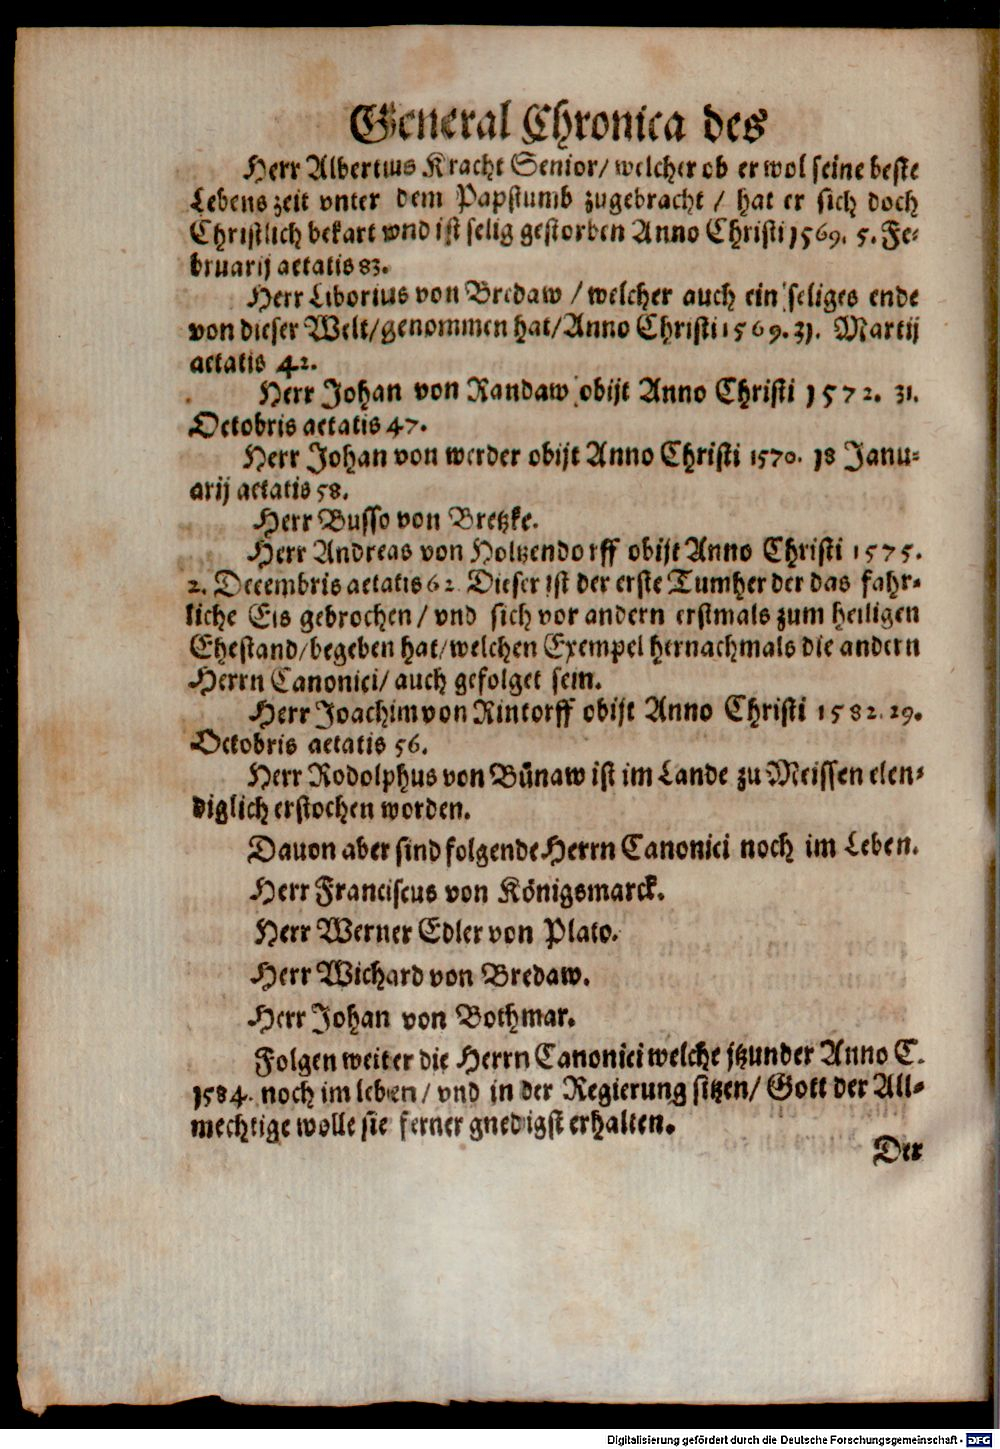 General Chronica des
Herr Albertus Kracht Senior/ welcher ob er wol seine beste
Lebens zeit vnter dem Papstumb zugebracht / hat er sich doch
Christlich bekart vnd ist selig gestorben Anno Christi 1569. 5. Fe-
bruarij aetatis 83.
Herr Liborius von Bredaw / welcher auch ein seliges ende
von dieser Welt/genommen hat/Anno Christi 1569. 31. Martij
aetatis 42.
Herr Johan von Randaw obijt Anno Christi 1572. 31.
Octobris aetatis 47.
Herr Johan von werder obijt Anno Christi 1570. 18 Janu-
arij aetatis 58.
Herr Busso von Bretzke.
Herr Andreas von Holtzendorff obijt Anno Christi 1575.
2. Decembris aetatis 62 Dieser ist der erste Tumher der das fahr-
liche Eis gebrochen/ vnd sich vor andern erstmals zum heiligen
Ehestand/begeben hat/welchen Exempel hernachmals die andern
Herrn Canonici/ auch gefolget sein.
Herr Joachim von Rintorff obijt Anno Christi 1582. 29.
Octobris aetatis 56.
Herr Rodolphus von Bünaw ist im Lande zu Meissen elen-
diglich erstochen worden.
Dauon aber sind folgende Herrn Canonici noch im Leben.
Herr Franciscus von Königsmarck.
Herr Werner Edler von Plato.
Herr Wichard von Bredaw.
Herr Johan von Bothmar.
Folgen weiter die Herrn Canonici welche jtzunder Anno C.
1584. noch im leben/ vnd in der Regierung sitzen/ Gott der All-
mechtige wolle sie ferner gnedigst erhalten.
Der
Digitalisierung gefördert durch die Deutsche Forschungsgemeinschaft - DFG